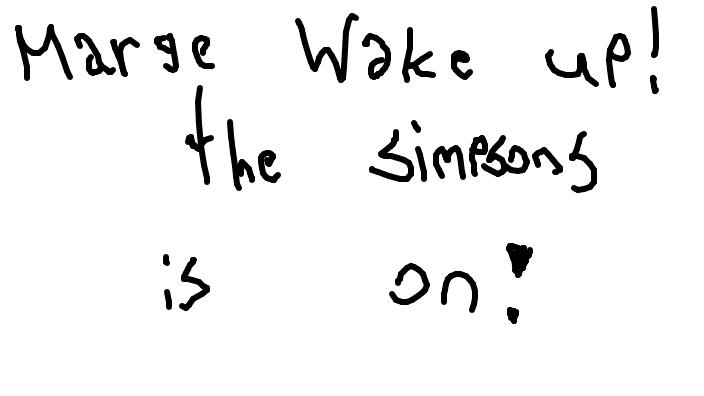 Marge Wake up!
the simpsons
is on!